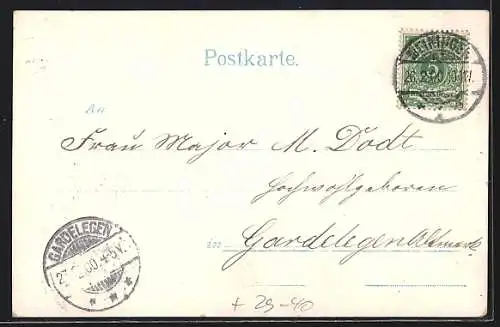 Postkarte.
5
An
Frau Major M. Dodt
Hochwohlgeboren
in Gardelegen Altmark
GARDELEGEN
27. 2.00.4-5V.
+ 29-40